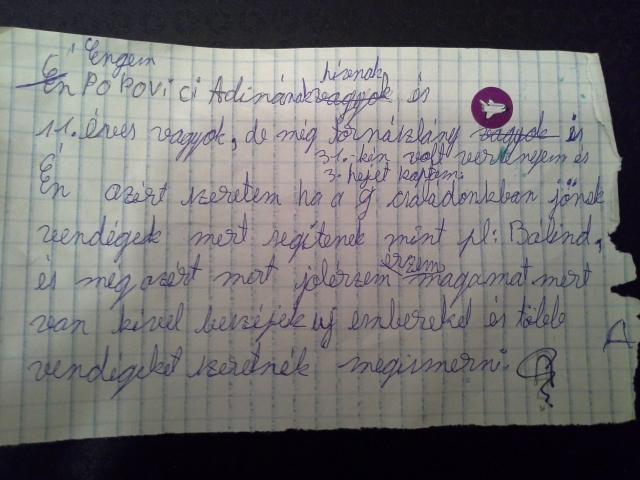 Engem
Én POPOVICI Adinának vagyok hívnak és
11. éves vagyok, de még tornászlány vagyok és
31.-kén volt versenyem és
3. hejet kaptam.
Én azért szeretem ha a családonkban jönek
vendégek mert segítenek mint pl: Bálind,
és még azért mert jólérzem érzem magamat mert
van kivel beszéjek új embereket és több
vendégeket szeretnék megismerni.